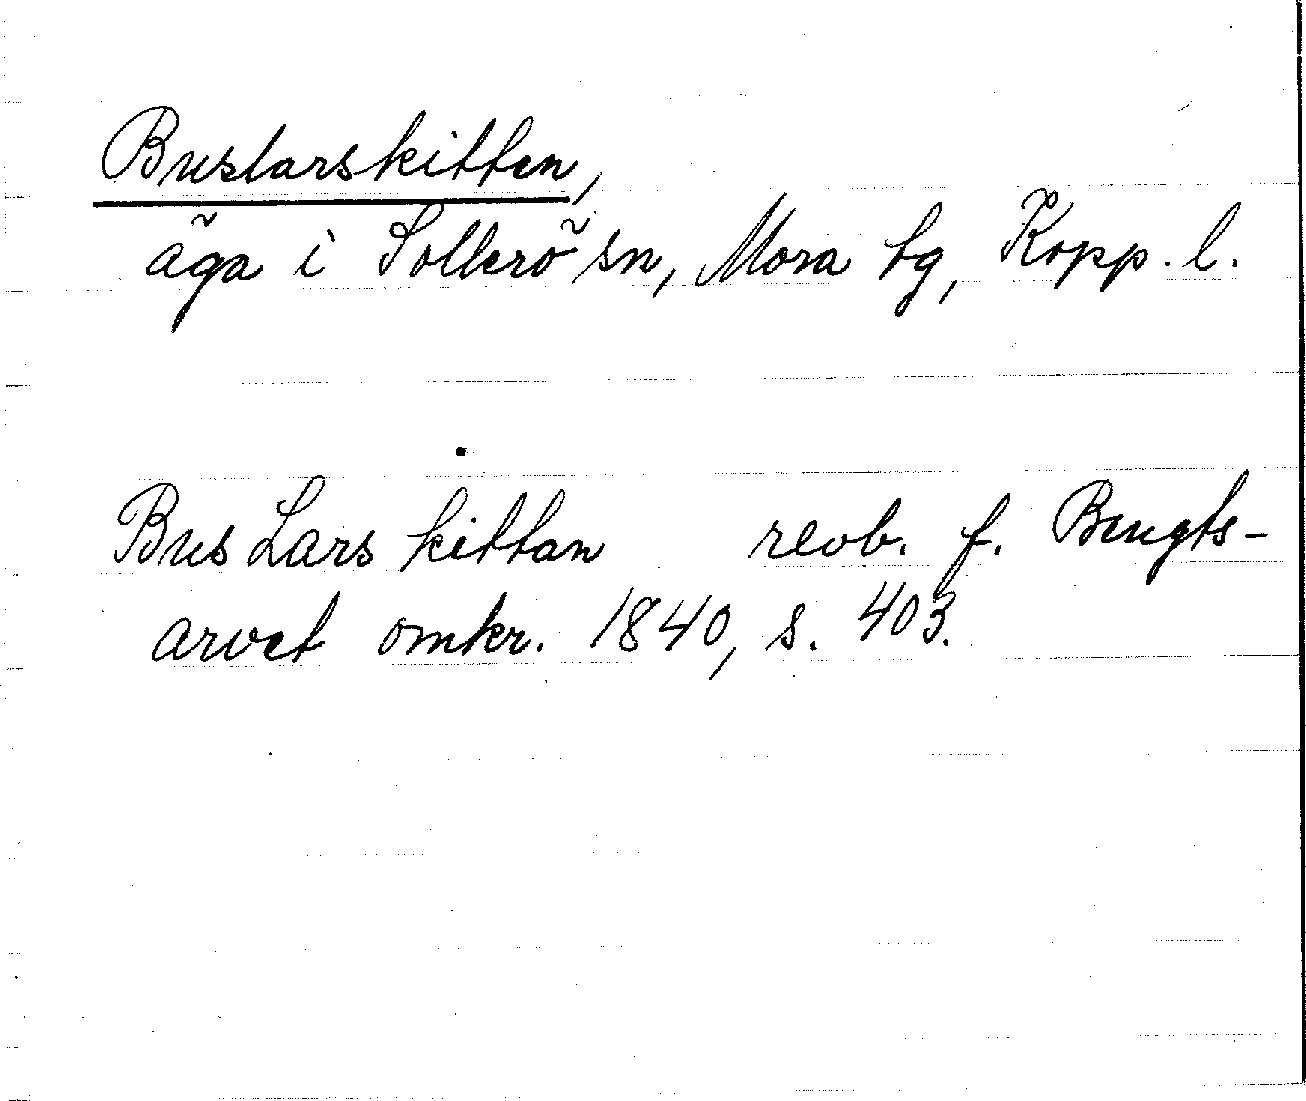 Buslarskitten,
äga i Sollerö sn, Mora tg, Kopp. l.
Bus Lars kittan revb. f. Bengts-
arvet omkr. 1840, s. 403.